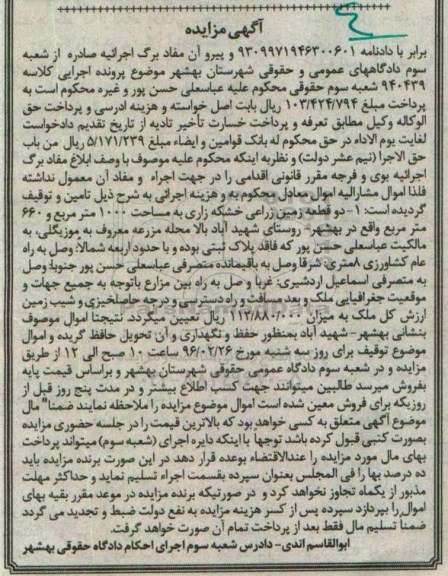 آگهی مزایده
برابر با دادنامه ۹۳۰۹۹۷۱۹۴۶۳۰۰۶۰۱ و پیرو آن مفاد برگ اجرائیه صادره از شعبه
سوم دادگاههای عمومی و حقوقی شهرستان بهشهر موضوع پرونده اجرایی کلاسه
۹۴۰۴۳۹ شعبه سوم حقوقی محکوم علیه عباسعلی حسن پور و غیره محکوم است به
پرداخت مبلغ ۱۰۳/۴۲۴/۷۹۴ ریال بابت اصل خواسته و هزینه ادرسی و پرداخت حق
الوکاله وکیل مطابق تعرفه و پرداخت خسارت تأخیر تادیه از تاریخ تقدیم دادخواست
لغایت یوم الاداء در حق محکوم له بانک قوامین و ایضاء مبلغ ۵/۱۷۱/۲۳۹ ریال من باب
حق الاجرا (نیم عشر دولت) و نظربه اینکه محکوم علیه موصوف با وصف ابلاغ مفاد برگ
اجرائیه بوی و فرجه مقرر قانونی اقدامی را در جهت اجراء و مفاد آن معمول نداشته
فلذا اموال مشارالیه اموال معادل محکوم به و هزینه اجرائی به شرح ذیل تامین و توقیف
گردیده است: ۱- دو قطعه زمین زراعی خشکه زاری به مساحت ۱۰۰۰ متر مربع و ۶۶۰
متر مربع واقع در بهشهر- روستای شهید آباد بالا محله مزرعه معروف به موزیگلی، به
مالکیت عباسعلی حسن پور که فاقد پلاک ثبتی بوده و با حدود اربعه شمالا: وصل به راه
عام کشاورزی ۸متری، شرقا وصل به باقیمانده متصرفی عباسعلی حسن پور جنوبا: وصل
به متصرفی اسماعیل اردشیری: غربا و صل به راه بین مزارع باتوجه به جمیع جهات و
موقعیت جغرافیایی ملک و بعد مسافت و راه دسترسی و درجه حاصلخیزی و شیب زمین
ارزش کل ملک به میزان ۱۱۲/۸۸۰/۰۰۰ ریال تعیین میگردد. نتیجتا اموال موصوف
بنشانی بهشهر- شهید آباد بمنظور حفظ و نگهداری و آن تحویل حافظ گریده و اموال
موضوع توقیف برای روز سه شنبه مورخ ۹۶/۰۲/۲۶ ساعت ۱۰ صبح الی ۱۲ از طریق
مزایده و در شعبه سوم دادگاه عمومی حقوقی شهرستان بهشهر و براساس قیمت پایه
بفروش میرسد طالبین میتوانند جهت کسب اطلاع بیشتر و در مدت پنج روز قبل از
روزیکه برای فروش معین شده است اموال موضوع مزایده را ملاحظه نمایند ضمنا" مال
موضوع آگهی متعلق به کسی خواهد بود که بالاترین قیمت را در جلسه حضوری مزایده
بصورت کتبی قبول کرده باشد توجها با اینکه دایره اجرای (شعبه سوم) میتواند پرداخت
بهای مال مورد مزایده را عندالاقتضاء بوعده قرار دهد در این صورت برنده مزایده باید
ده درصد بها را فی المجلس بعنوان سپرده بقسمت اجراء تسلیم نماید و حداکثر مهلت
مذبور از یکماه تجاوز نخواهد کرد و در صورتیکه برنده مزایده در موعد مقرر بقیه بهای
اموال را بپردازد سپرده پس از کسر هزینه مزایده به نفع دولت ضبط و تجدید می گردد
ضمناً تسلیم مال فقط بعد از پرداخت تمام آن صورت خواهد گرفت.
ابوالقاسم اندی- دادرس شعبه سوم اجرای احکام دادگاه حقوقی بهشهر